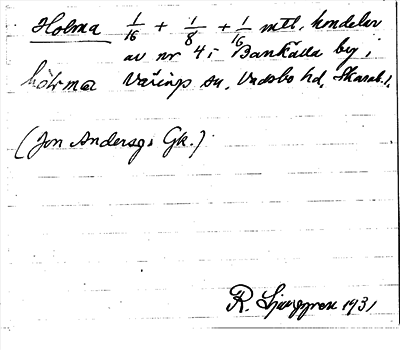 Holma 1/16 + 1/8 + 1/16 mtl. hemdelar
av nr 4 i Bankälla by i
hòlma Väring sn, Vadsbo hd, Skarab. l.
(Jon Andersgs Gk.)
R. Ljunggren 1931